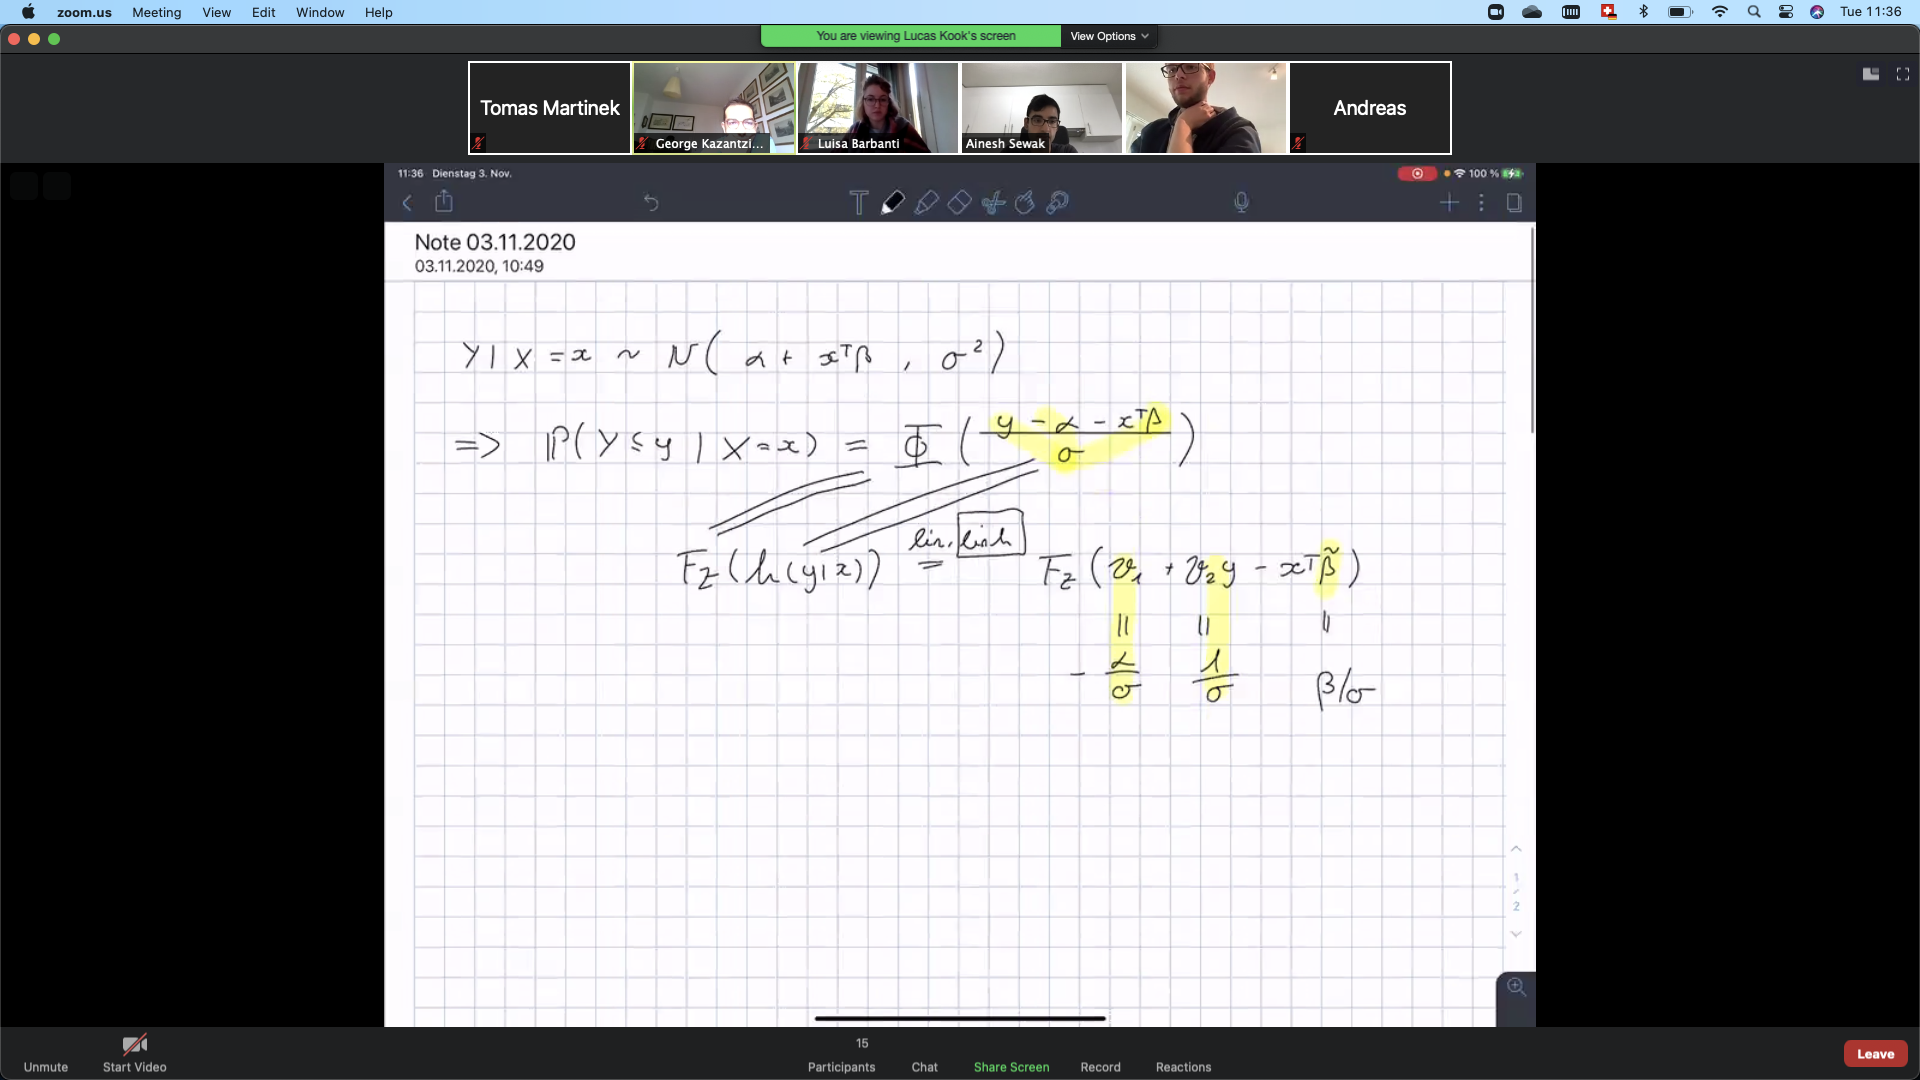 zoom.us Meeting View Edit Window Help Tue 11:36
You are viewing Lucas Kook's screen View Options
Tomas Martinek
George Kazantzi...
Luisa Barbanti
Ainesh Sewak
Andreas
11:36 Dienstag 3. Nov. 100 %
Note 03.11.2020
03.11.2020, 10:49
Y | X = x ~ N( α + xᵀβ , σ²)
=> ℙ(Y ≤ y | X = x) = Φ ( (y - α - xᵀβ) / σ )
F_Z(h(y|x)) lin. = F_Z(ϑ₁ + ϑ₂y - xᵀβ̃)
|| || ||
- α/σ 1/σ β/σ
1
/
2
15
Unmute Start Video Participants Chat Share Screen Record Reactions Leave